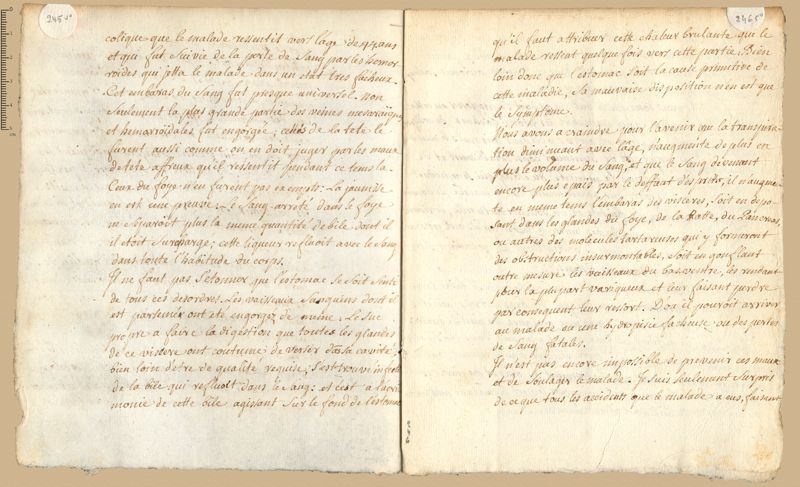 245v°
colique que le malade ressentit vers l'age des ans
et qui fut suivie de la perte de sang par les hemor
roides qui jetta le malade dans un etat tres facheux.
Cet embaras du sang fut presque universel. non
seulement la plus grande partie des veines mesaraiques
et hemorroidales fut engorgée; celles de la tete le
furent aussi comme on en doit juger par les maux
de tete affreux qu'il ressentit pendant ce tems la.
Ceux du foye n'en furent pas exempts: La jaunisse
en est une preuve: Le sang arrêté dans le foye
ne separoit plus la meme quantité de bile dont il
il etoit surchargé; cette liqueur refluoit avec le sang
dans toute l'habitude du corps.
Il ne faut pas s'etonner que l'estomac se soit senti
de tous ces desordres. Les vaisseaux sanguins dont il
est parsemé ont eté engorgez de meme. Le suc
propre a faire la digestion que toutes les glandes
de ce viscere ont coutume de verser dans sa cavité,
bien loin d'etre de qualité requise, s'est trouvé infecté
de la bile qui refluoit dans le sang: et c'est a l'acri
monie de cette bile agissant sur le fond de l'estomac
246r°
qu'il faut attribuer cette chaleur brulante que le
malade ressent quelque fois vers cette partie. Bien
loin donc que l'estomac soit la cause primitive de
cette maledie, sa mauvaise disposition n'en est que
le symptome.
Nous avons a craindre pour l'avenir que la transpira
tion diminuant avec l'age, n'augmente de plus en
plus le volume du sang, et que le sang devenant
encore plus epais par le deffaut d'esprits, il n'augme
te en meme tems l'embaras des visceres, soit en depo
sant dans les glandes du foye, de la Ratte, du Pancreas,
ou autres des molecules tartareuses qui y formeront
des obstructions insurmontables, soit en gonflant
outre mesure les vaisseaux du bas ventre, les rendant
pour la plupart variqueux et leur faisant perdre
par consequent leur ressort. D'ou il pouroit arriver
au malade ou une hydropisie facheuse ou des pertes
de sang fatales.
Il n'est pas encore impossible de prevenir ces maux
et de soulager le malade. Je suis seulement surpris
de ce que tous les accidents que le malade a eus, faisant